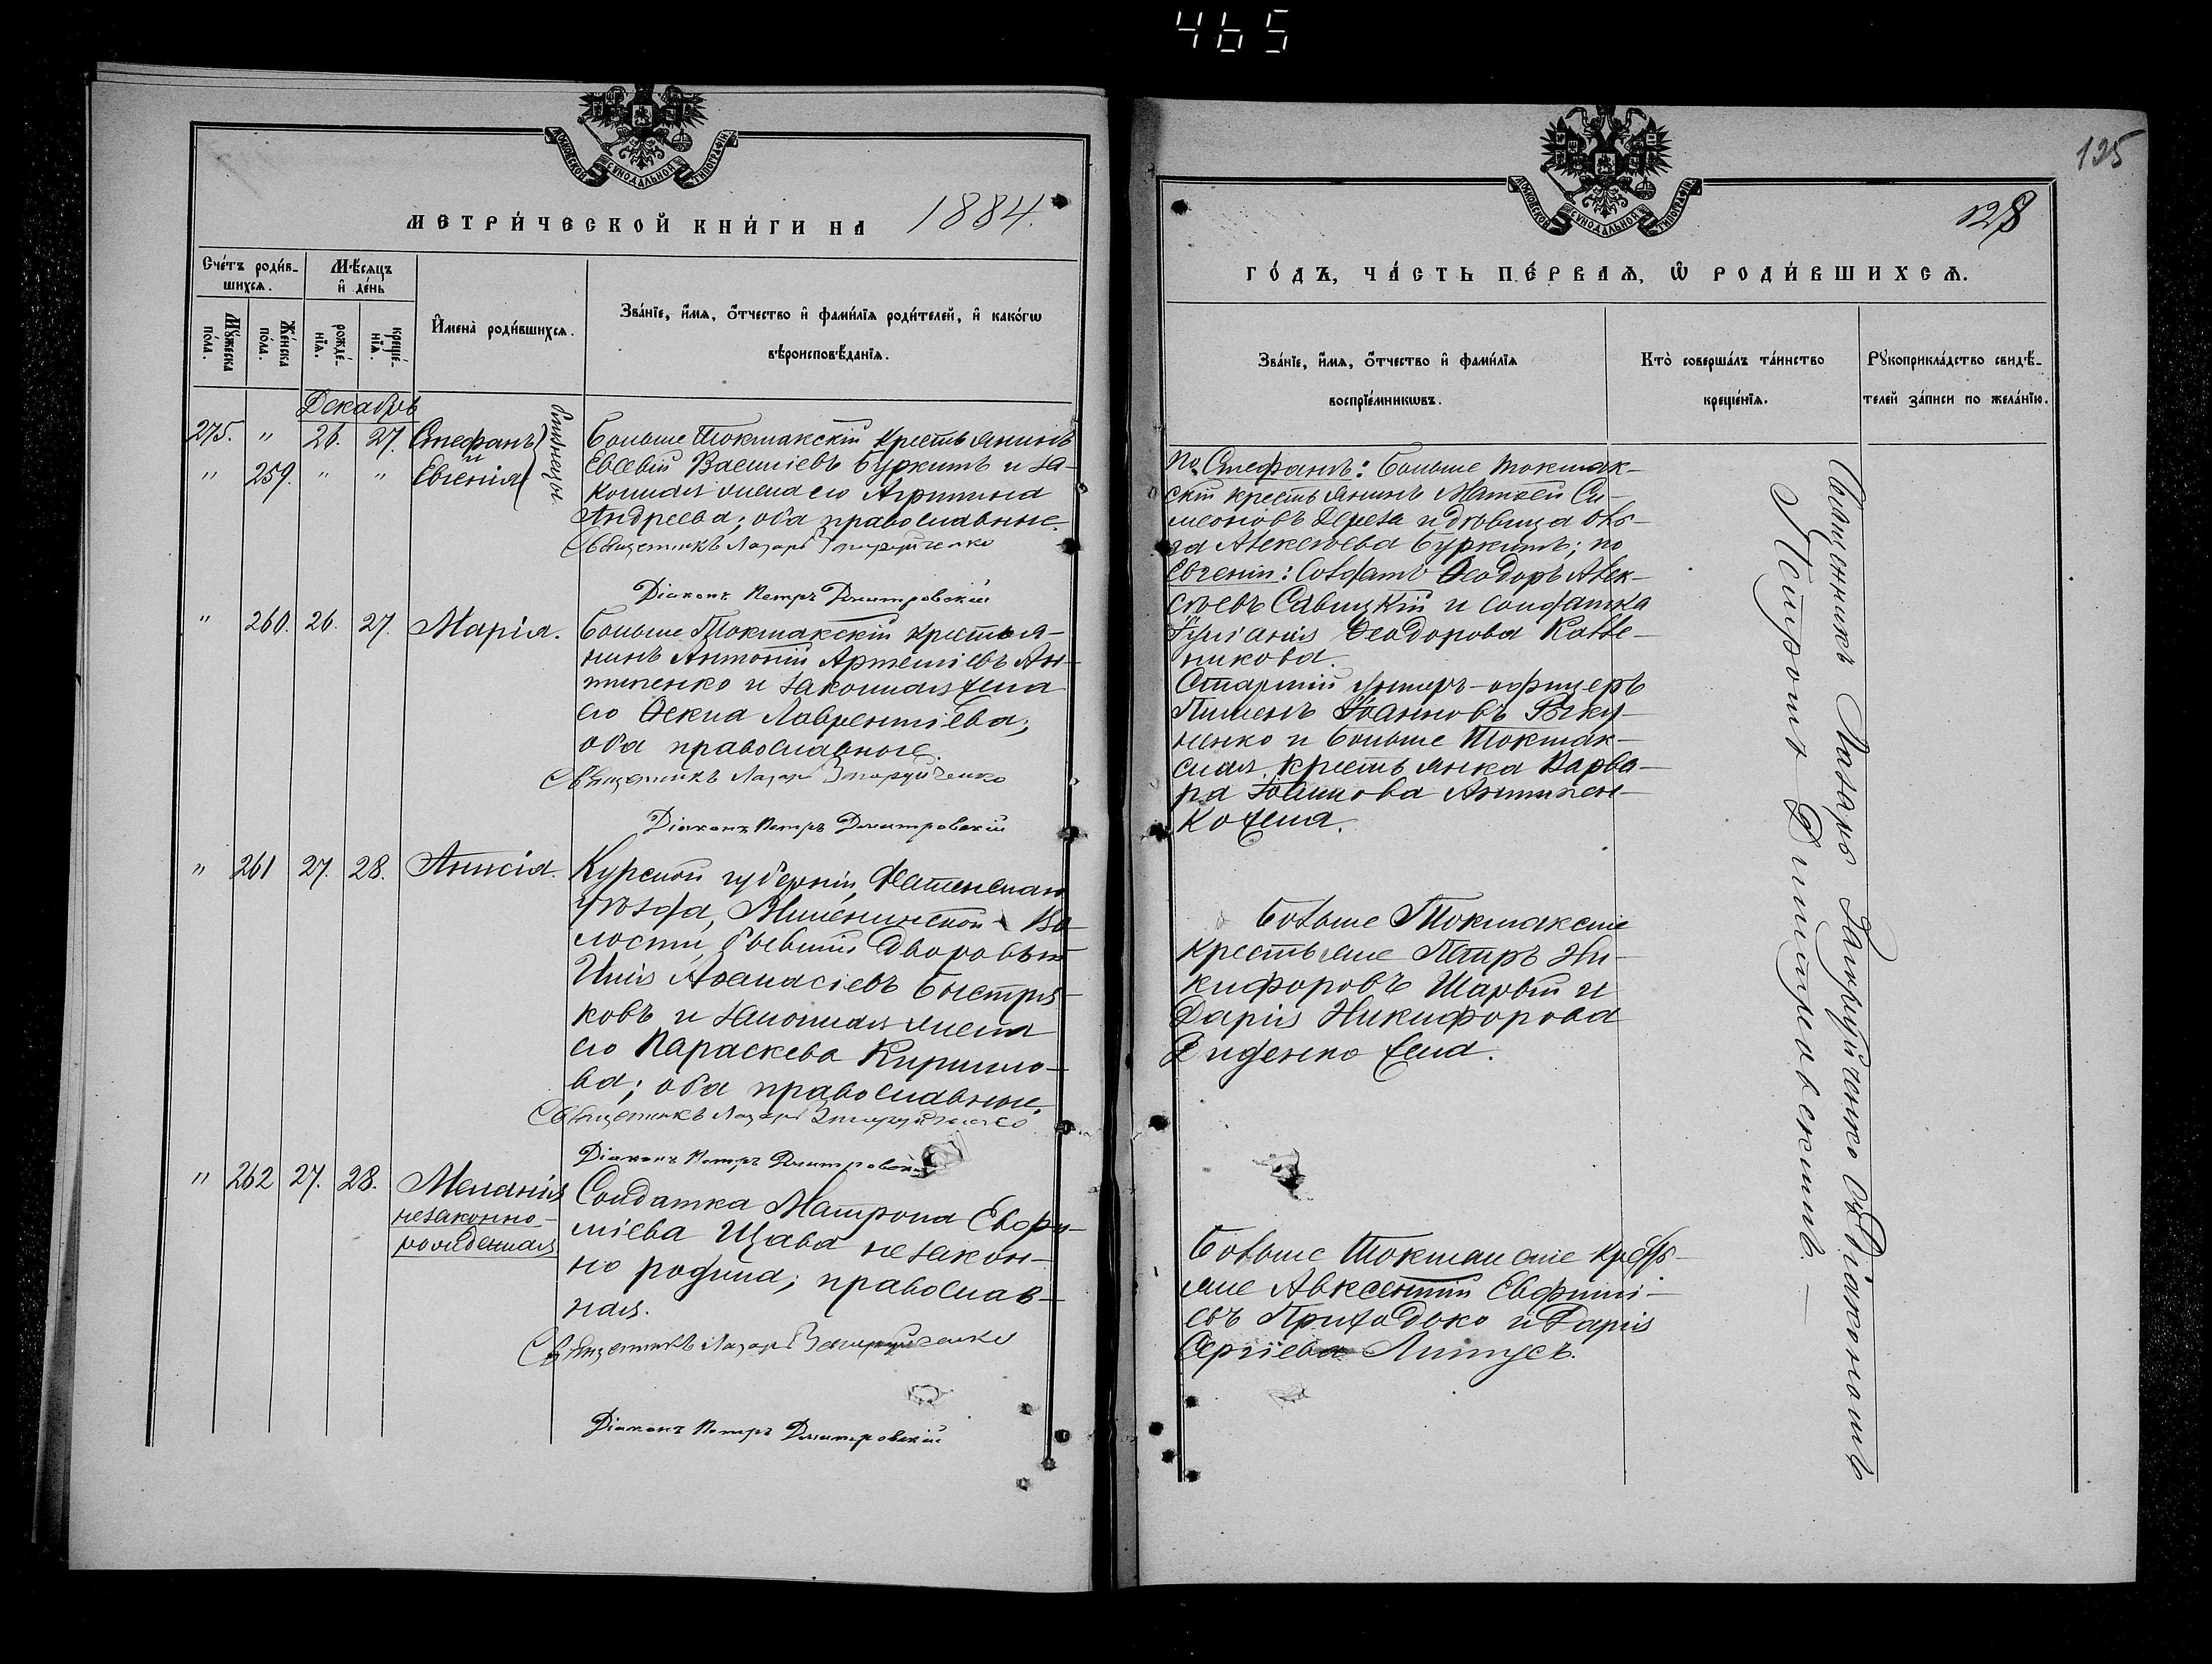 465
МОСКОВСКОЙ СѴНОДАЛЬНОЙ ТИПОГРАФІИ
МЕТРИ́ЧЕСКОЙ КНИ́ГИ НА 1884.
Сче́тъ роди́в-
шихсѧ.
Мѣ́сѧцъ
и҆ де́нь
Мꙋ́жеска по́ла.
Же́нска по́ла.
рожде́-
нїѧ.
креще́-
нїѧ.
И҆мена̀ роди́вшихсѧ.
Зва́нїе, и҆́мѧ, ѻ҆́тчество и҆ фами́лїѧ роди́телей, и҆ како́гѡ
вѣроисповѣ́данїѧ.
Декабрь
275. " 26. 27. Стефанъ
и
" 259. " " Евгенія
близнецы
Больше Токмакскій крестьянинъ
Евсевій Василіевъ Буркутъ и за-
конная жена его Агрипина
Андреева; оба православные.
Священникъ Лазарь
Діаконъ Петръ Димитровскій
" 260. 26. 27. Марія.
Больше Токмакскій крестья-
нинъ Антоній Артеміевъ Ан-
типенко и законная жена
его Ѳекла Лаврентіева;
оба православные.
Священникъ Лазарь
Діаконъ Петръ Димитровскій
" 261 27. 28. Анисія.
Курской губерніи, Фатежскаго
уѣзда, Волости, бывшій дворовый
Илія Аѳанасіевъ Быстря-
ковъ и законная жена
его Параскева Кирилло-
ва; оба православные.
Священникъ Лазарь
Діаконъ Петръ Димитровскій
" 262 27. 28. Меланія
незаконно-
рожденная
Солдатка Матрона Евфи-
міева Щава незакон-
но родила; православ-
ная.
Священникъ Лазарь
Діаконъ Петръ Димитровскій
125
128
МОСКОВСКОЙ СѴНОДАЛЬНОЙ ТИПОГРАФІИ
ГО́ДЪ, ЧА́СТЬ ПЕ́РВАѦ, Ѡ҆ РОДИ́ВШИХСѦ.
Зва́нїе, и҆́мѧ, ѻ҆́тчество и҆ фами́лїѧ
воспрїе́мникѡвъ.
Кто̀ соверша́лъ та́инство
креще́нїѧ.
Рꙋкоприкла́дство свидѣ́-
телей за́писи по жела́нїю.
По Стефанѣ: Больше Токмак-
скій крестьянинъ Матѳей Си-
меоновъ Дереза и дѣвица Оль-
га Алексѣева Буркутъ; по
Евгеніи: Солдатъ Ѳеодоръ Алек-
сѣевъ Савицкій и солдатка
Іуліанія Ѳеодорова Калье-
никова.
Старшій унтеръ-офицеръ
Пименъ Іоанновъ
и Больше Токмак-
ская крестьянка Варва-
ра Іоаннова Антипен-
кова.
Больше Токмакскіе
крестьяне Петръ Ни-
кифоровъ Шарый и
Дарія Никифорова
Диденкова.
Больше Токмакскіе кресть-
яне Авксентій Евфимі-
евъ Приходько и Дарія
Сергіева
Священникъ Лазарь съ Діакономъ
Петромъ Димитровскимъ.